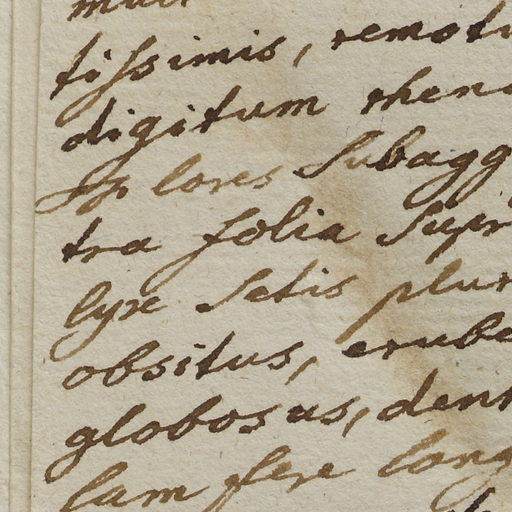 tissimis, remot
digitum rhen
Flores Subagg
tra folia Supr
lyx Setis plur
obsitus, erube
globosus, dent
lam fere long